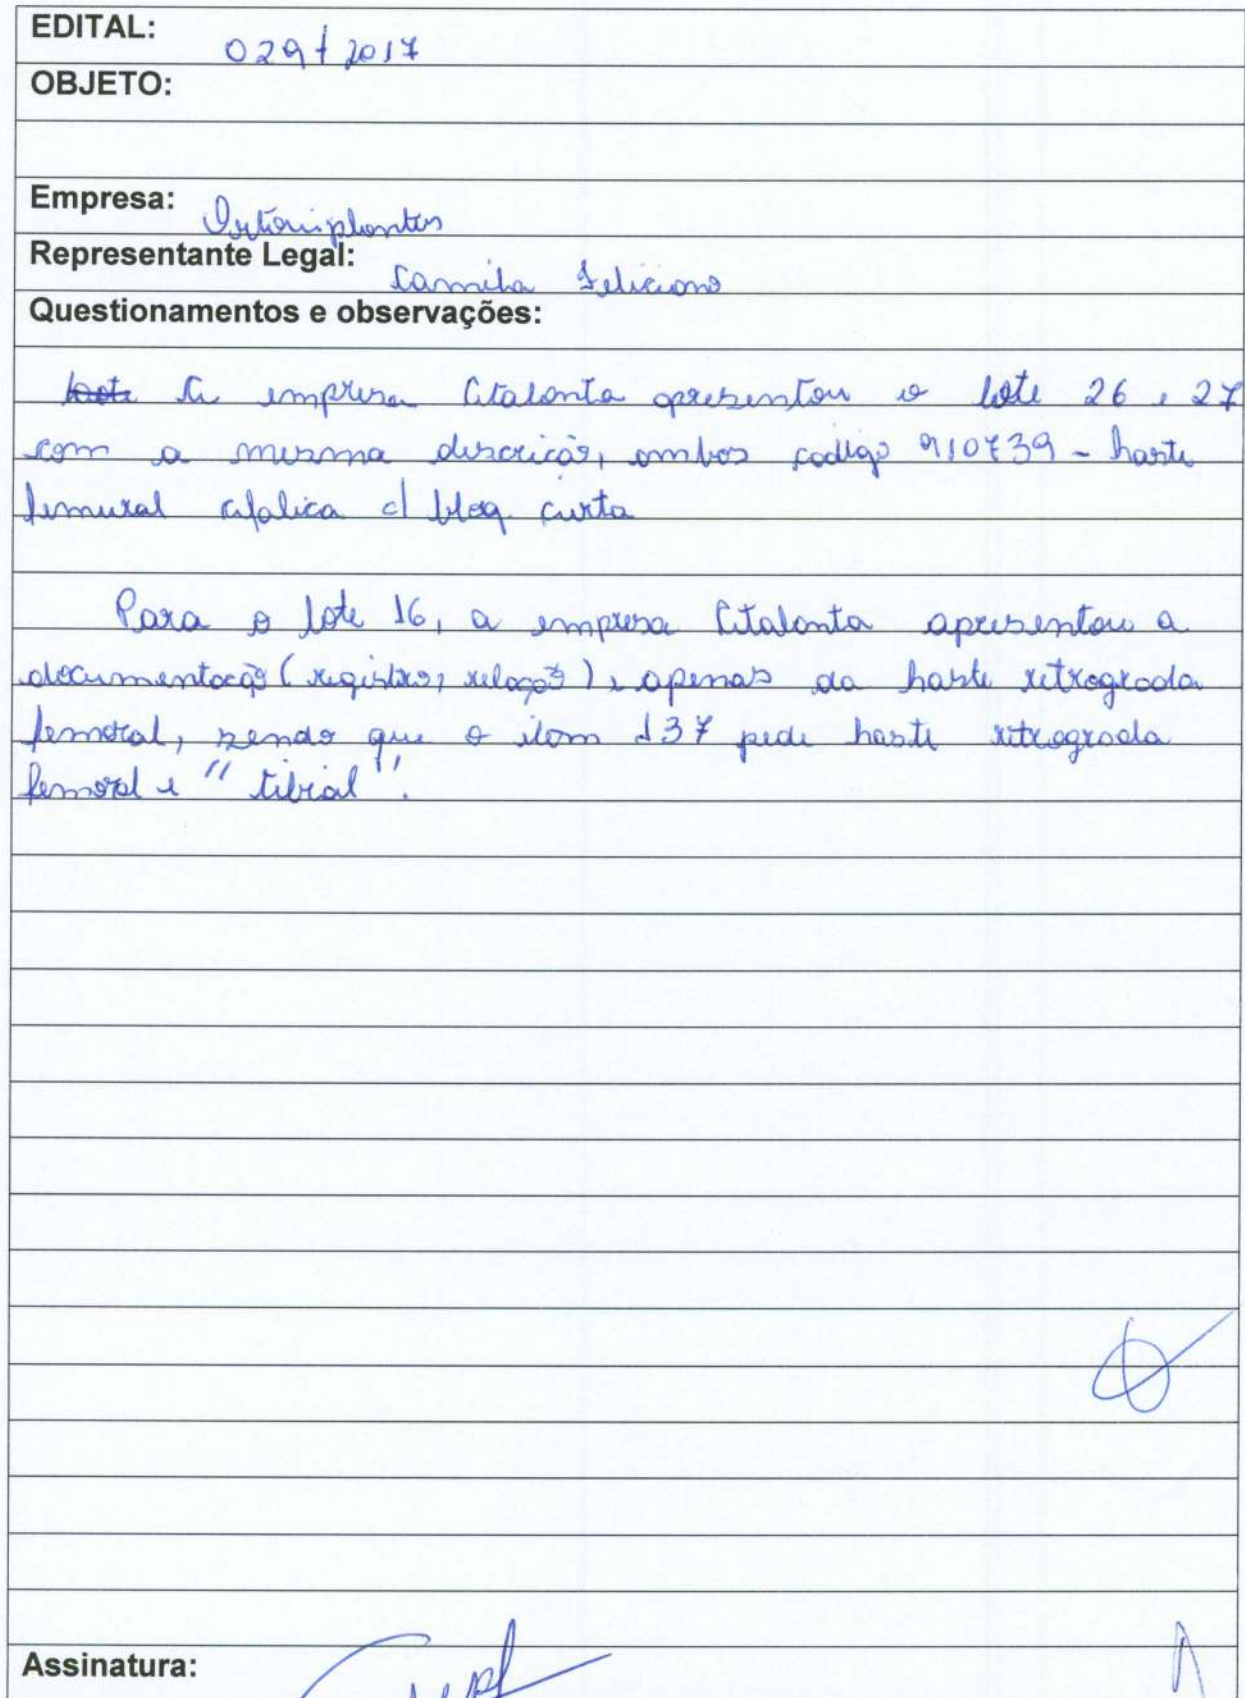 EDITAL: 029/2017
OBJETO:
Empresa: Ortoimplantes
Representante Legal: Camila Feliciano
Questionamentos e observações:
A empresa Atalanta apresentou o lote 26 e 27
com a mesma descrição, ambos codigo 910739 - haste
femural cefalica c/ bloq. curta
Para o lote 16, a empresa Atalanta apresentou a
documentação (registro, relação), apenas da haste retrograda
femoral, sendo que o item 137 pede haste retrograda
femoral e "tibial".
Assinatura: